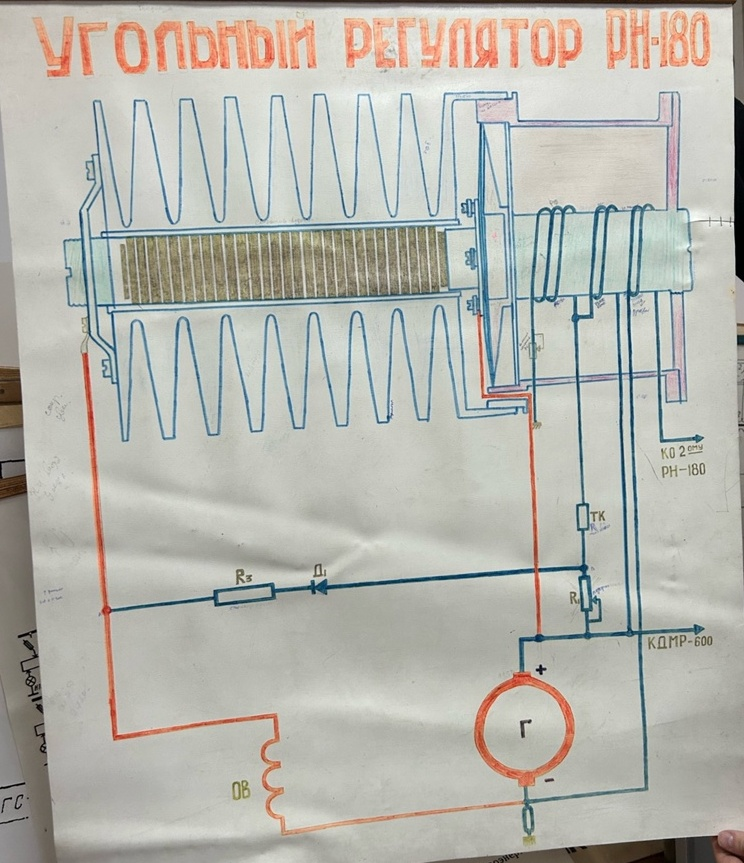 УГОЛЬНЫЙ РЕГУЛЯТОР РН-180
КО 2ОМУ
РН-180
ТК
R3
Д1
R
КДМР-600
+
Г
-
ОВ
ГС